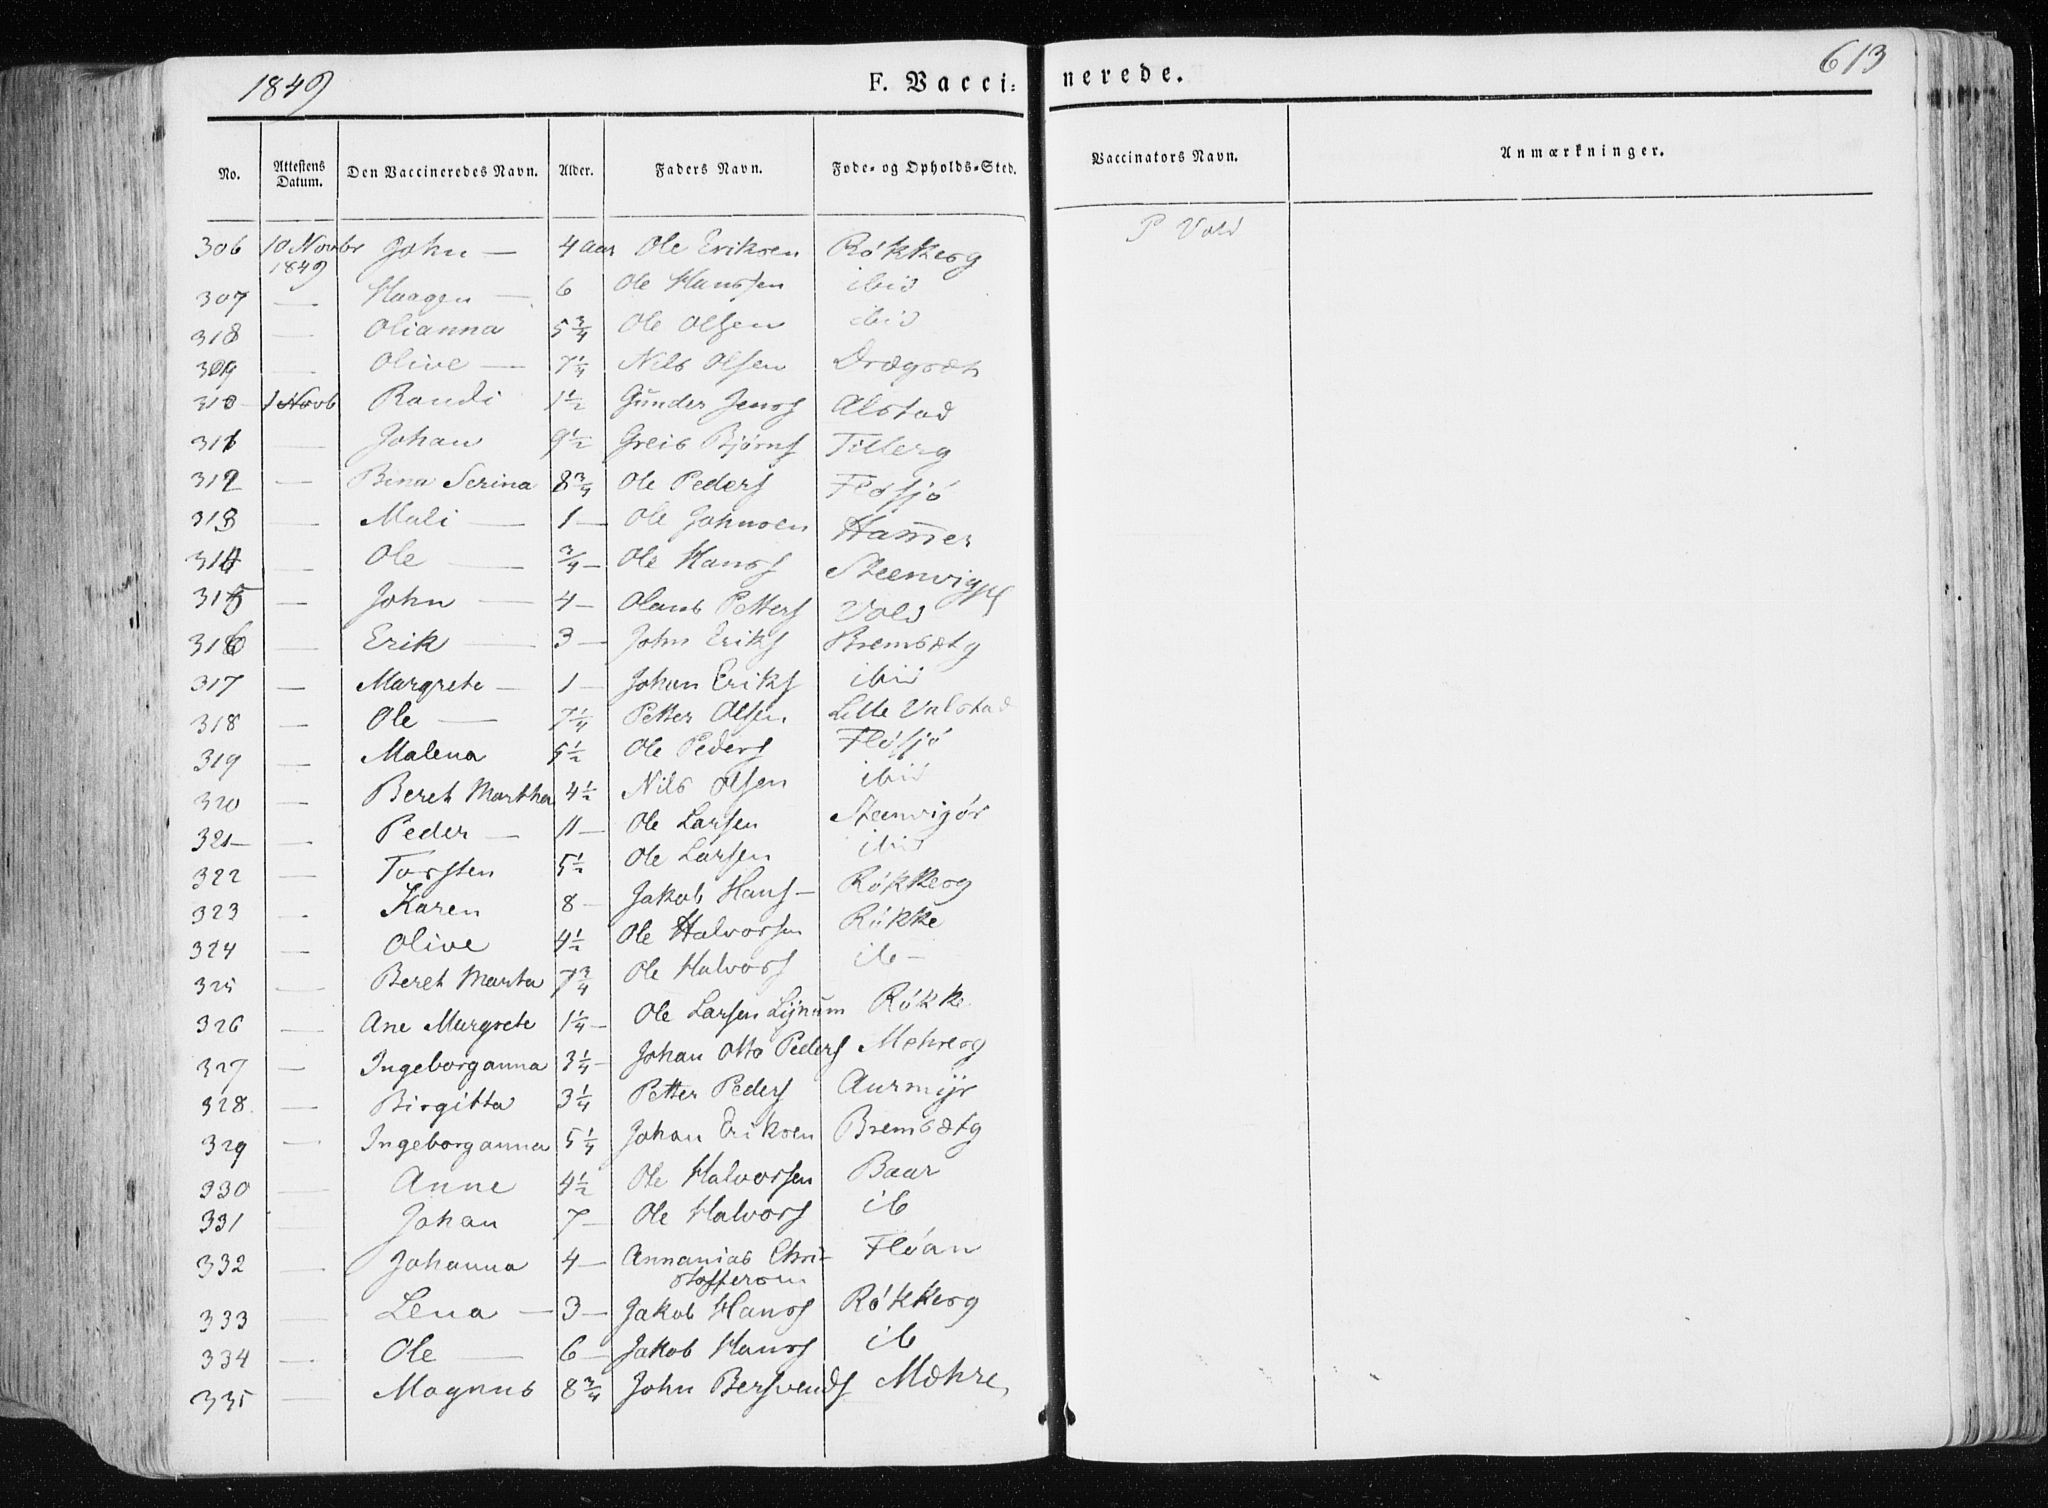 1849 F. Vacci= nerede. 613
No. Attestens Datum. Den Vaccineredes Navn. Alder. Faders Navn. Føde- og Opholds-Sted. Vaccinators Navn. Anmærkninger.
306 10 Novbr 1849 John — 4 aar Ole Eriksen Røkkerg P Vold
307 — Haagen — 6 Ole Hanssen ibid
318 — Olianna 5 3/4 Ole Olsen ibid
309 — Olive — 7 1/4 Nils Olsen
310 1 Novb Randi 1 1/2 Gunder Jensf Alstad
311 — Johan 9 1/2 Greis Bjørnsf Tillerg
312 — Bina Serina 8 3/4 Ole Pedersf Fløsjø
313 — Mali — 1 — Ole Johnsen Ham̄er
314 — Ole — 3/4 — Ole Hansf
315 — John — 4 — Olaus Pettersf Vold
316 — Erik — 3 — John Eriksf Bremsætg
317 — Margrete — 1 — Johan Eriksf ibid
318 — Ole — 7 1/4 Petter Olsen Lille Valstad
319 — Malena 5 1/2 Ole Pedersf Fløsjø
320 — Beret Martha 4 1/2 Nils Olsen ibid
321 — Peder — 11 — Ole Larsen Steenvigør
322 — Torsten 5 1/2 Ole Larsen ibid
323 — Karen 8 — Jakob Hansf — Røkkerg
324 — Olive 4 1/2 Ole Halvorsen Røkke
325 — Beret Marta 7 3/4 Ole Halvorsf ib —
326 — Ane Margrete 1 1/4 — Ole Larsen Lynum Røkke
327 — Ingeborganna 3 1/4 — Johan Otto Pedersf Mehrerg
328 — Birgitta 3 1/4 Petter Pedersf Aurmyr
329 — Ingeborganna 5 1/4 Johan Eriksen Bremsætg
330 — Anne 4 1/2 Ole Halvorsen Baar
331 — Johan 7 — Ole Halvorsf ib
332 — Johanna 4 — Annanias Chri-
stoffersen Fløan
333 — Lena — 3 — Jakob Hansf Røkkerg
334 — Ole — 6 — Jakob Hansf ib
335 — Magnus 8 3/4 John Bersvendsf Mæhre